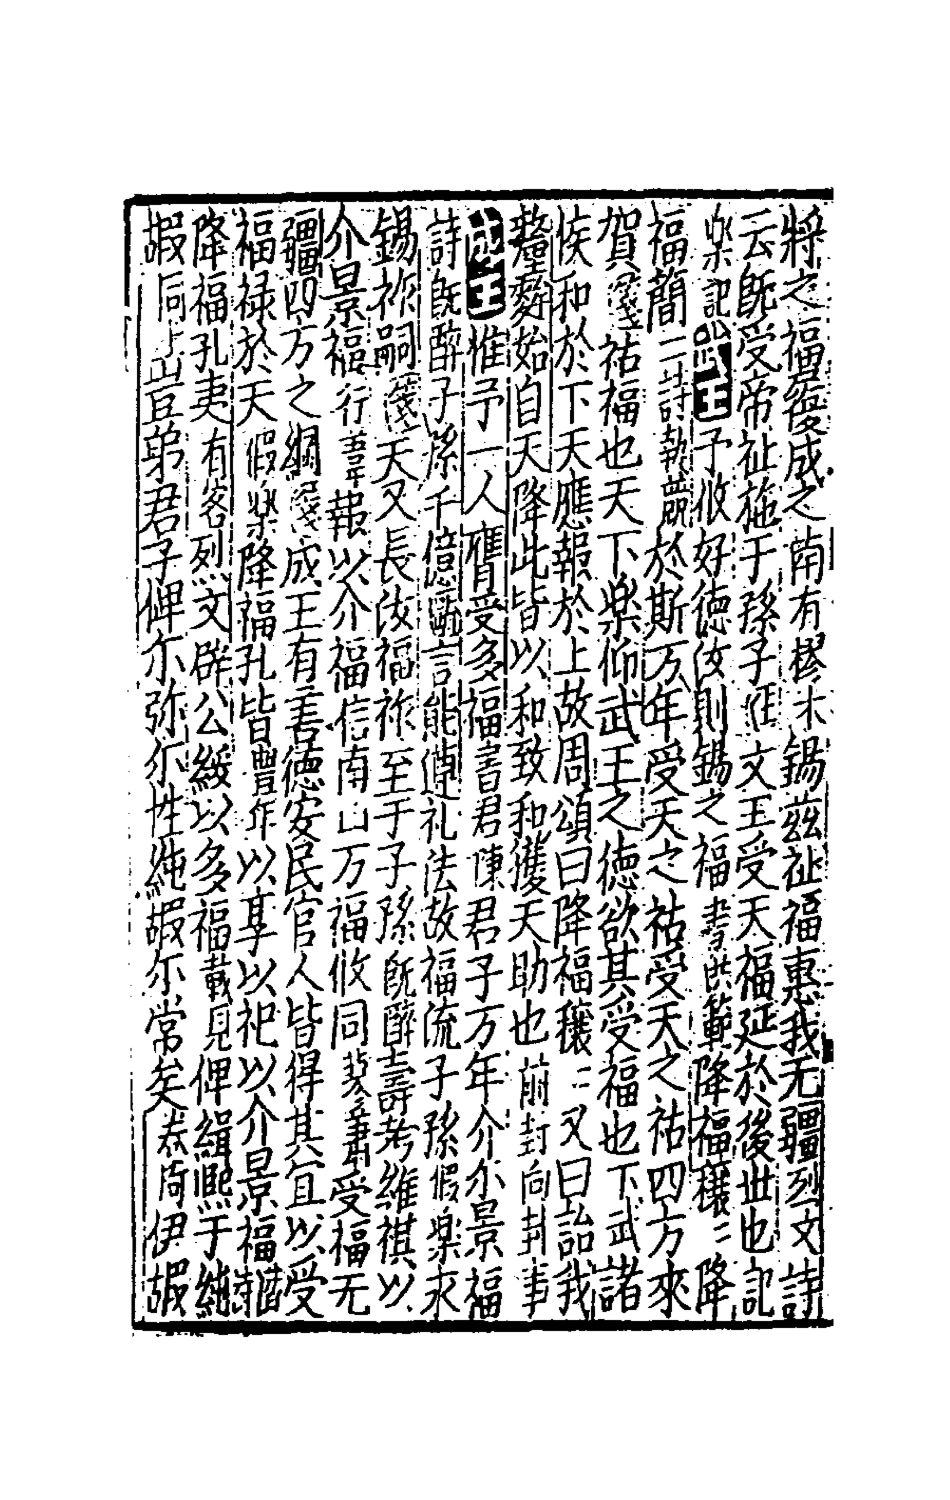 將之福履成之南有樛木錫茲祉福惠我无疆烈文詩
云既受帝祉施于孫子注文王受天福延於後世也記
楽記武王予攸好德汝則錫之福書洪範降福穰〻降
福簡〻詩執競於斯万年受天之祜受天之祜四方來
賀箋祜福也天下楽仰武王之德欲其受福也下武諸
侯和於下天應報於上故周頌曰降福穰〻又曰詒我
釐麰始自天降此皆以和致和獲天助也前封向封事
成王惟予一人膺受多福書君陳君子万年介尓景福
詩既醉子孫千億箋言能遵礼法故福流子孫假楽永
錫祚嗣箋天又長汝福祚至于子孫既醉壽考維祺以
介景福行葦報以介福信南山万福攸同蓼蕭受福无
疆四方之綱箋成王有善德安民官人皆得其宜以受
福禄於天假楽降福孔皆豐年以享以祀以介景福潛
降福孔夷有客烈文辟公綏以多福載見俾緝熙于純
嘏同上豈弟君子俾尓弥尓性純嘏尓常矣卷阿伊嘏